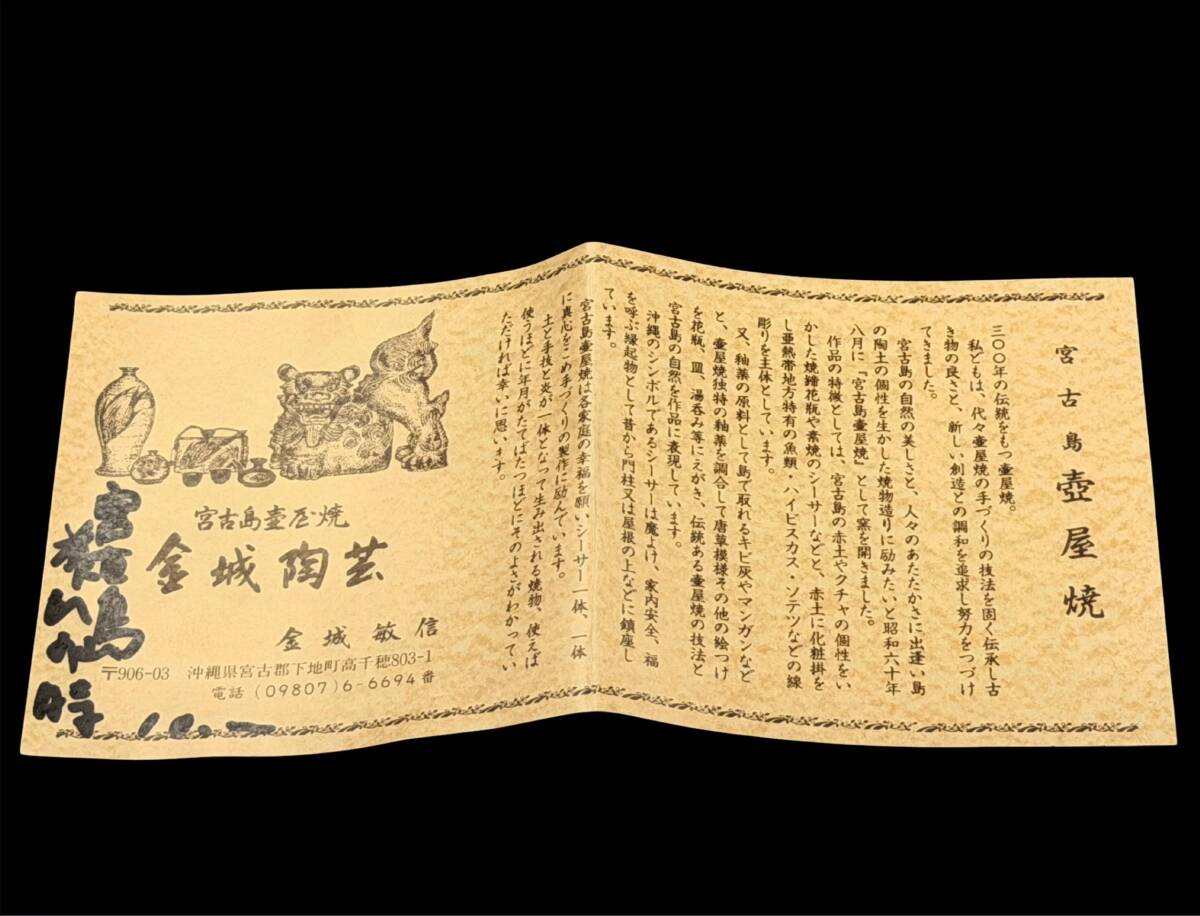 宮古島壺屋焼
三〇〇年の伝統をもつ壺屋焼。
私どもは、代々壺屋焼の手づくりの技法を固く伝承し古
き物の良さと、新しい創造との調和を追求し努力をつづけ
てきました。
宮古島の自然の美しさと、人々のあたたかさに出逢い島
の陶土の個性を生かした焼物造りに励みたいと昭和六十年
八月に「宮古島壺屋焼」として窯を開きました。
作品の特徴としては、宮古島の赤土やクチャの個性をい
かした焼締花瓶や素焼のシーサーなどと、赤土に化粧掛を
し亜熱帯地方特有の魚類・ハイビスカス・ソテツなどの線
彫りを主体としています。
又、釉薬の原料として島で取れるキビ灰やマンガンなど
と、壺屋焼独特の釉薬を調合して唐草模様その他の絵つけ
を花瓶、皿、湯呑み等にえがき、伝統ある壺屋焼の技法と
宮古島の自然を作品に表現しています。
沖縄のシンボルであるシーサーは魔よけ、家内安全、福
を呼ぶ縁起物として昔から門柱又は屋根の上などに鎮座し
ています。
宮古島壺屋焼は各家庭の幸福を願いシーサー一体、一体
に真心をこめ手づくりの製作に励んでいます。
土と手技と炎が一体となって生み出される焼物、使えば
使うほどに年月がたてばたつほどにそのよさがわかってい
ただければ幸いに思います。
宮古島壺屋焼
金城陶芸
金城敏信
〒906-03 沖縄県宮古郡下地町高千穂803-1
電話(09807)6-6694番
宮古島